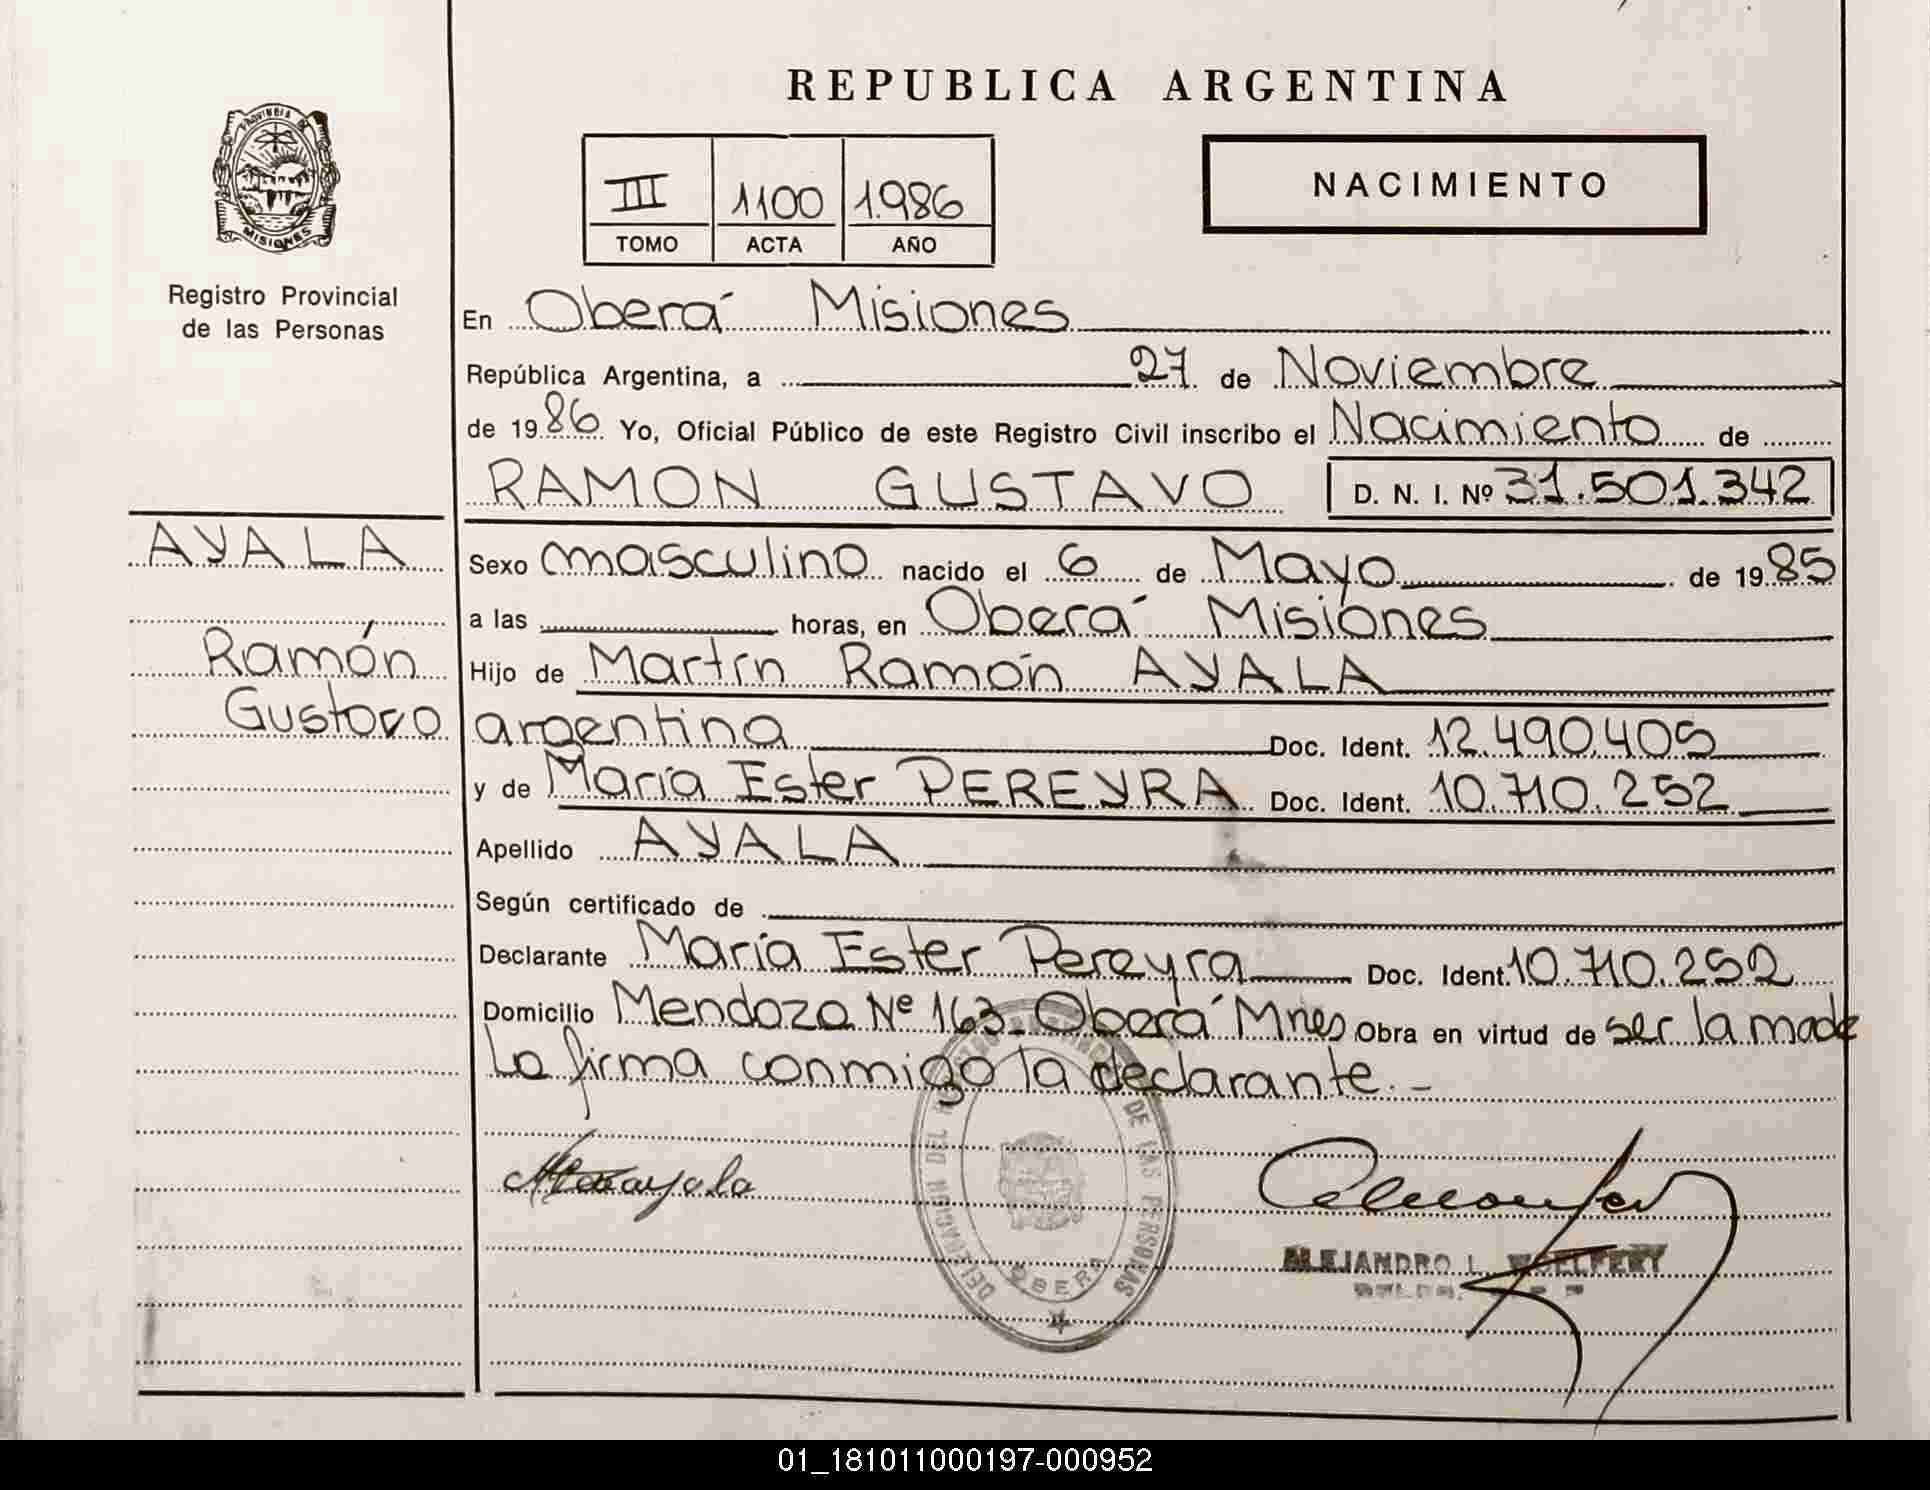 REPUBLICA ARGENTINA
PROVINCIA DE
MISIONES
Registro Provincial
de las Personas
III 1100 1.986
TOMO ACTA AÑO
NACIMIENTO
En Oberá Misiones
República Argentina, a 27 de Noviembre
de 1986 Yo, Oficial Público de este Registro Civil inscribo el Nacimiento de
RAMON GUSTAVO D. N. I. Nº 31.501.342
AYALA
Ramón
Gustavo
Sexo masculino nacido el 6 de Mayo de 1985
a las horas, en Oberá Misiones
Hijo de Martín Ramón AYALA
argentina Doc. Ident. 12.490.405
y de María Ester PEREYRA Doc. Ident. 10.710.252
Apellido AYALA
Según certificado de
Declarante María Ester Pereyra Doc. Ident. 10.710.252
Domicilio Mendoza Nº 163- Oberá Mnes Obra en virtud de ser la made
La firma conmigo la declarante.-
DELEGACION DEL REGISTRO PROVINCIAL DE LAS PERSONAS
OBERA
ALEJANDRO L.
01_181011000197-000952